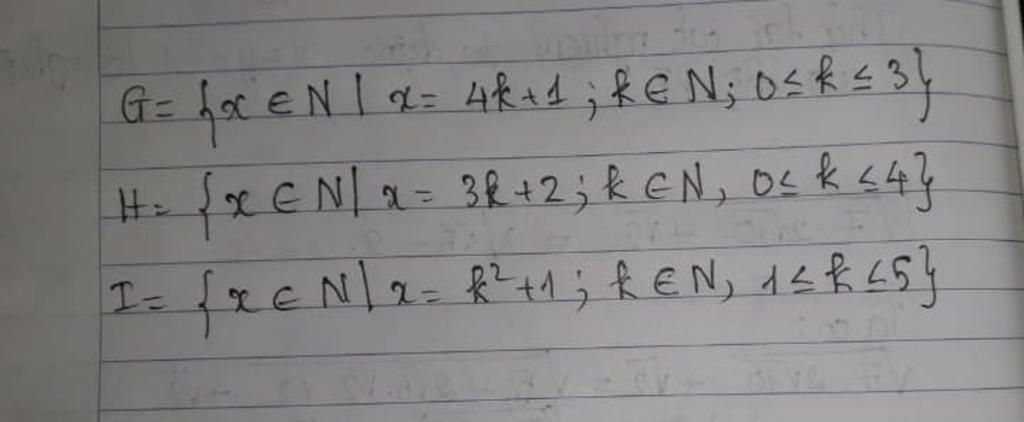 G= {x ∈ N | x= 4k+1 ; k ∈ N; 0≤ k ≤ 3}
H= {x ∈ N | x= 3k+2 ; k ∈ N, 0≤ k ≤4}
I= {x ∈ N | x= k²+1 ; k ∈ N, 1≤ k ≤5}